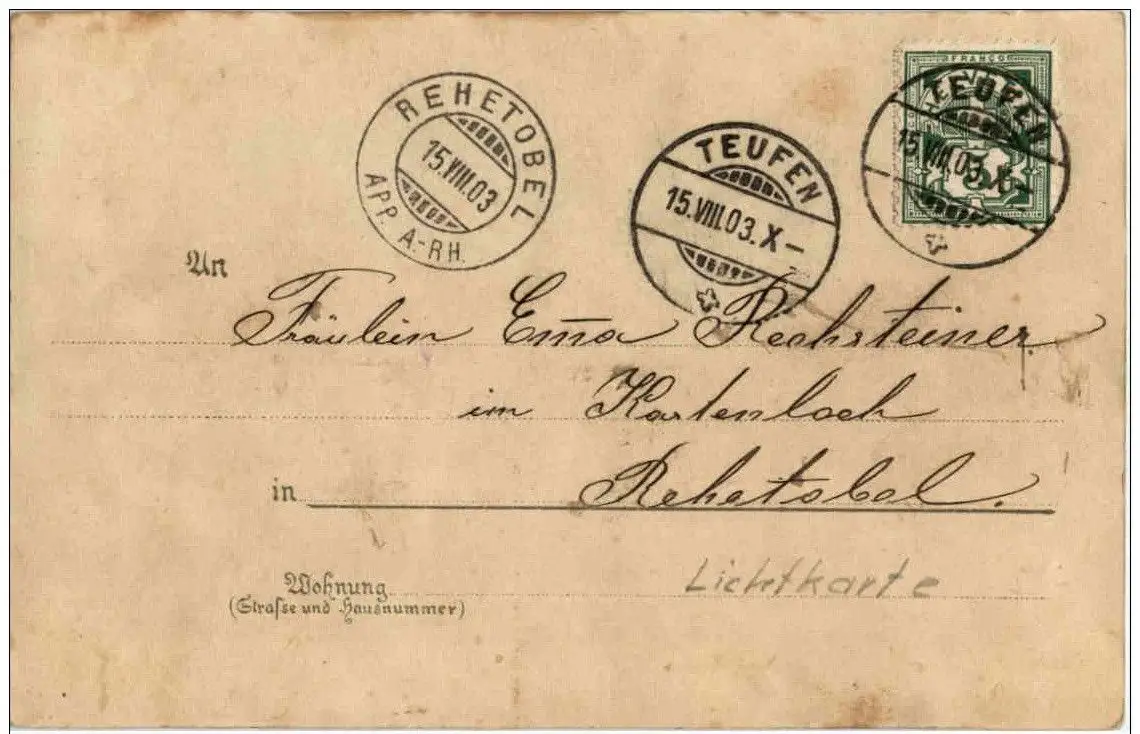 FRANCO
HELVETIA
TEUFEN
15.VIII.03.X–
5
TEUFEN
15.VIII.03.X–
REHETOBEL
15.VIII.03
APP. A.-RH.
An
Fräulein Em̅a Rechsteiner
im Kastenloch
in Rehetobel.
Lichtkarte
Wohnung
(Strasse und Hausnummer)